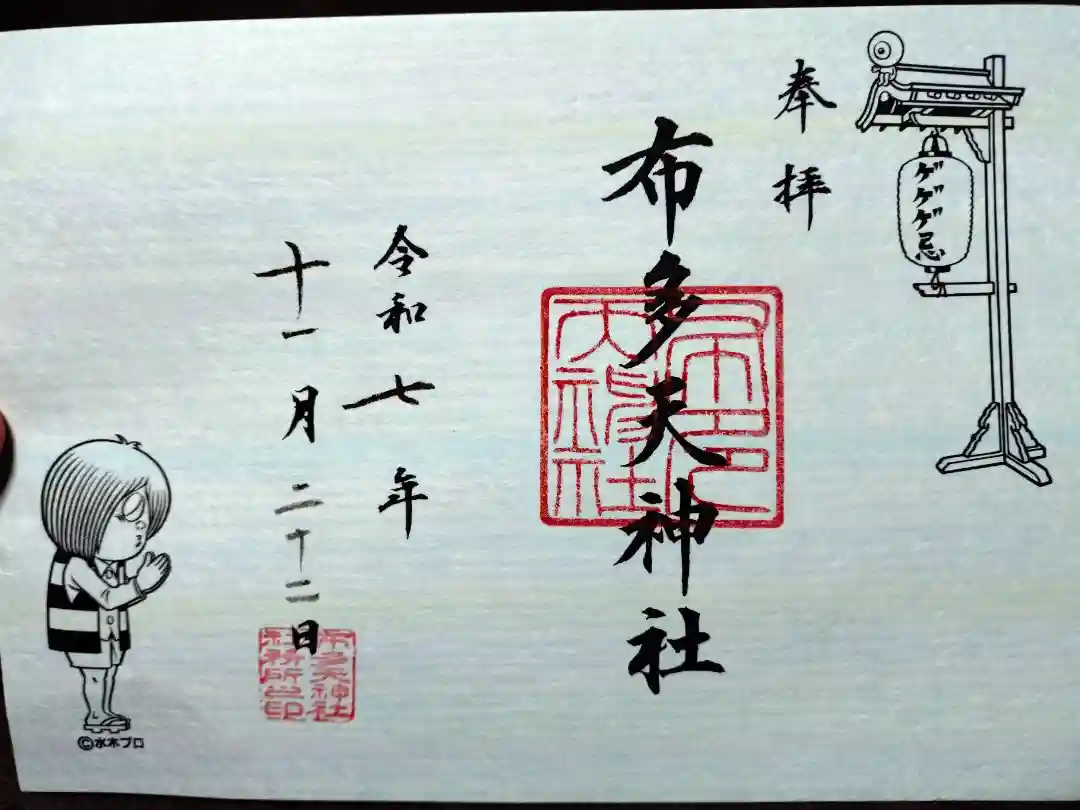 ゲゲゲ忌
奉拝
布多天神社
布多天神社
令和七年
十一月二十二日
布多天神社社務所之印
©水木プロ